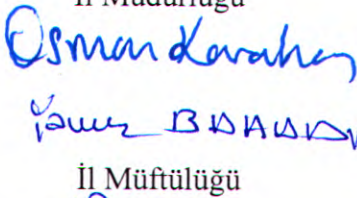 İl Müdürlüğü
Osman Karahan
BAHADIR
İl Müftülüğü